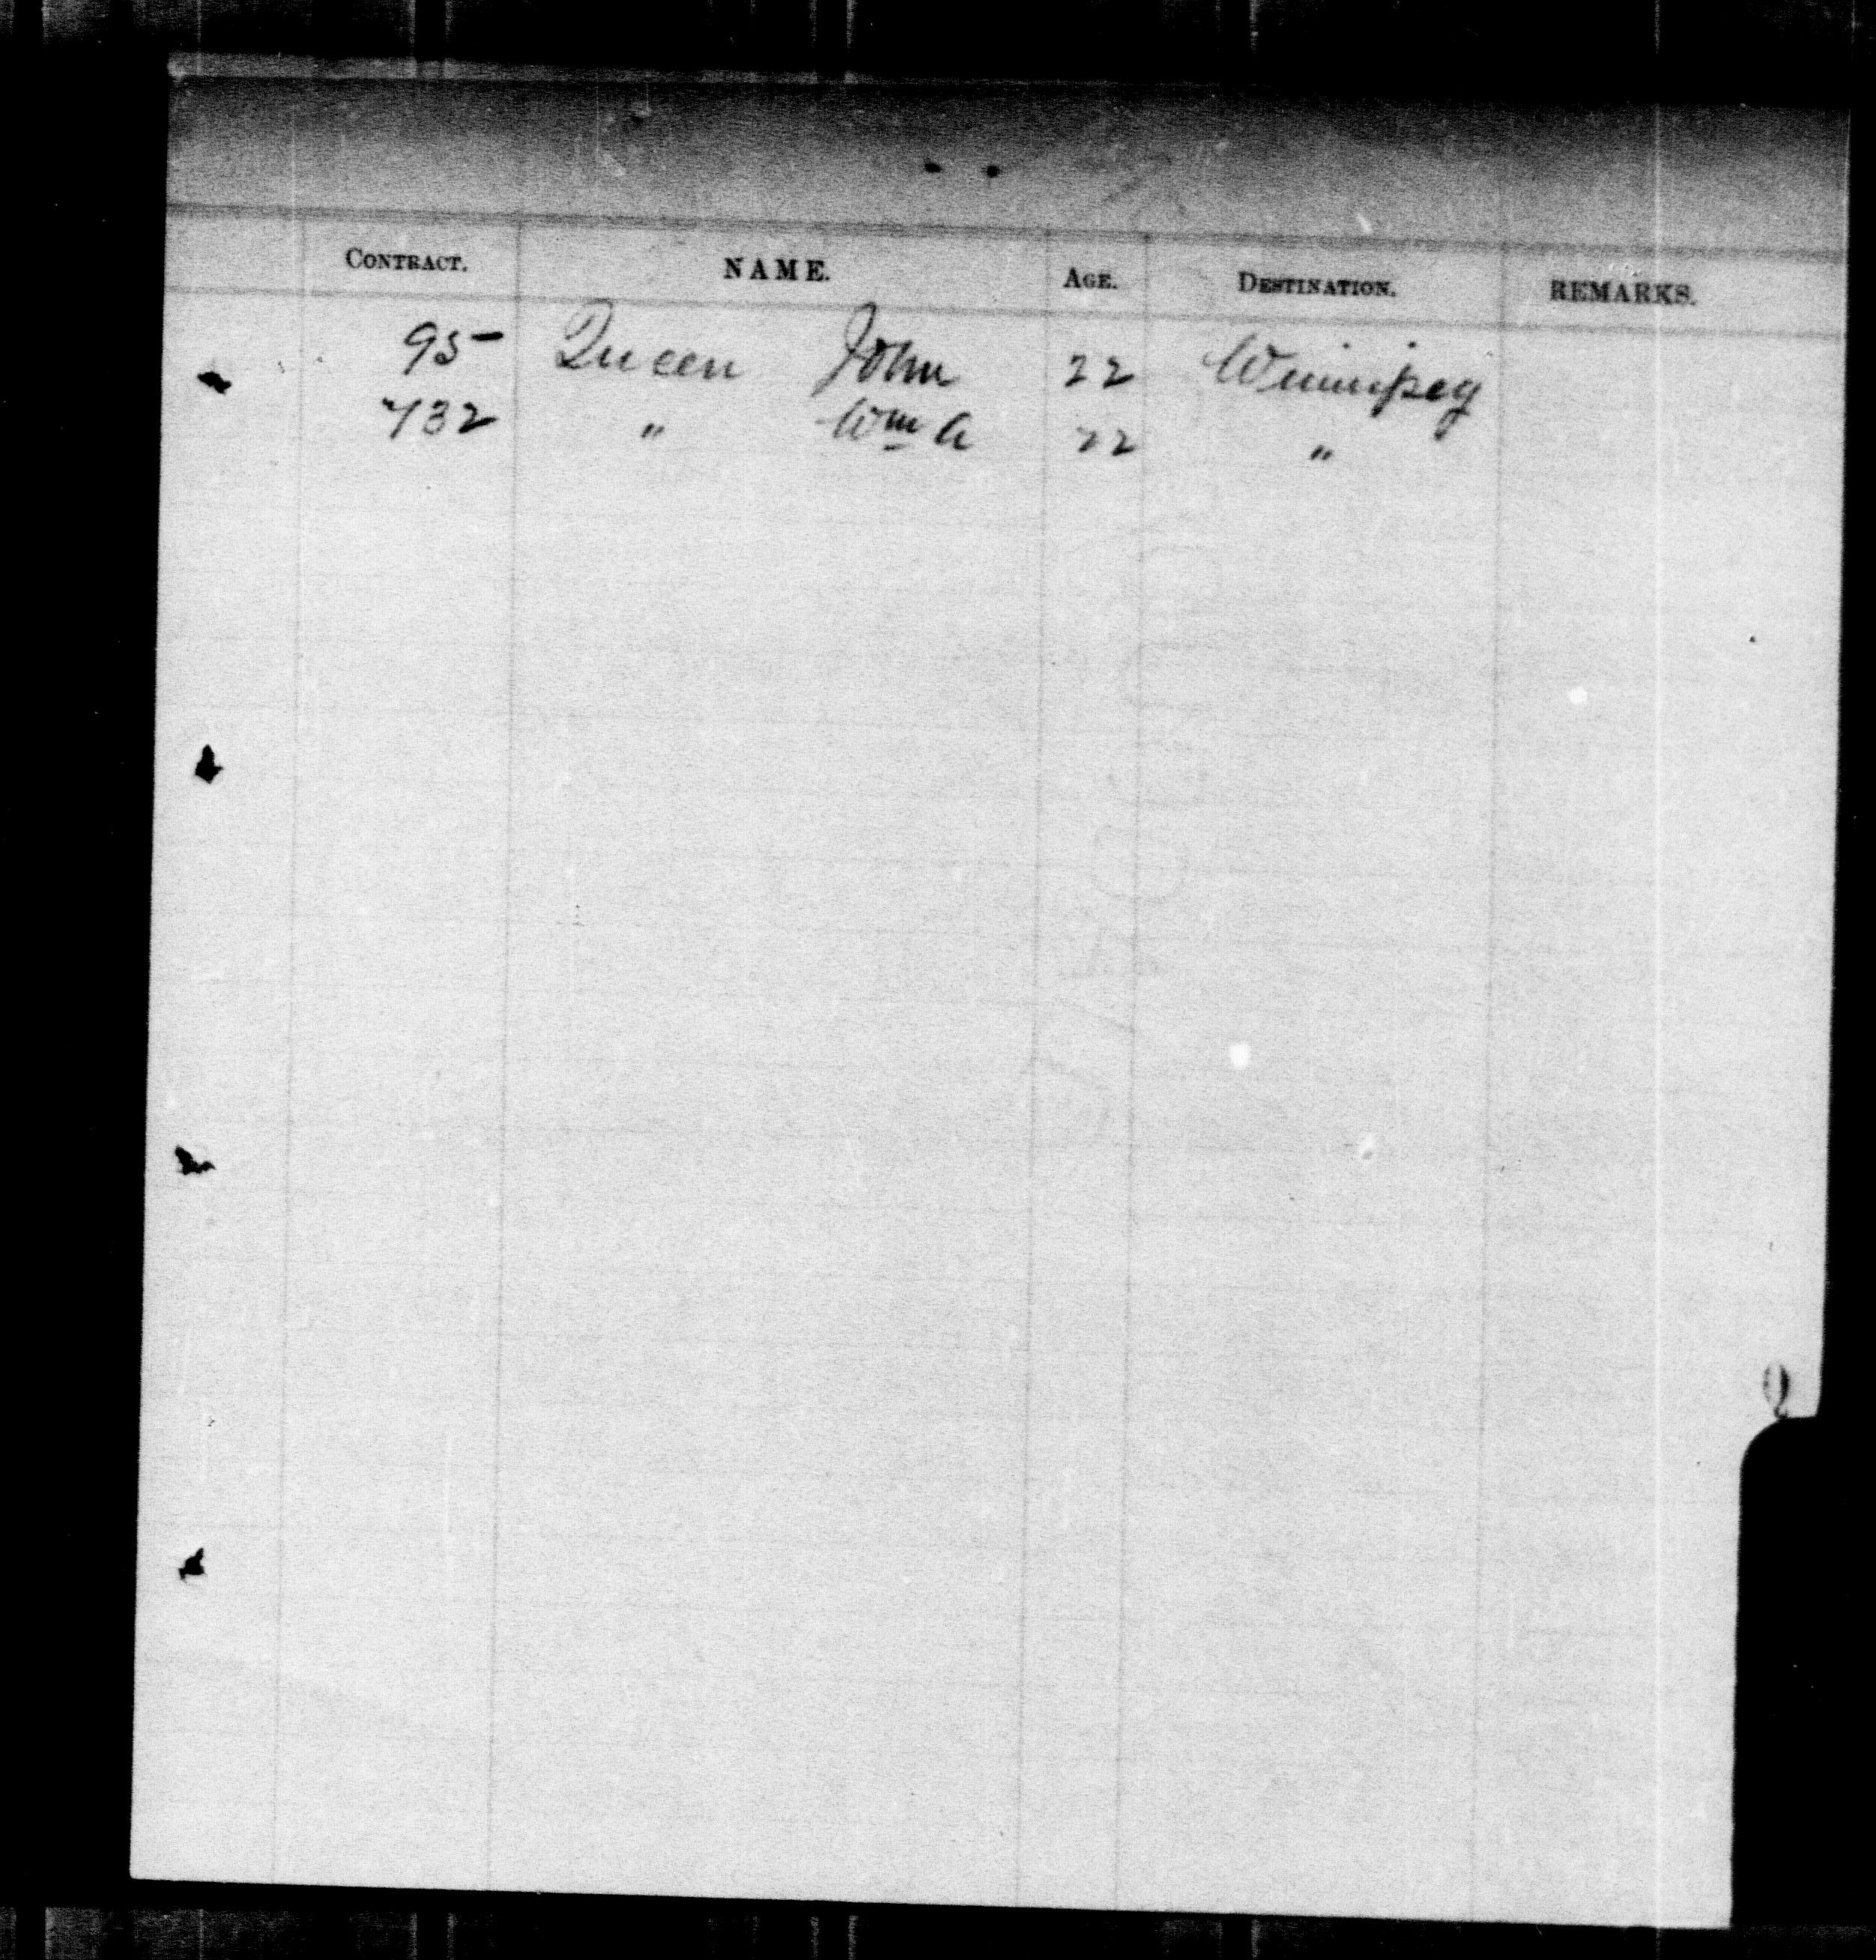 CONTRACT. NAME. AGE. DESTINATION. REMARKS.
95 Queen John 22 Winnipeg
732 " Wm A 22 "
Q